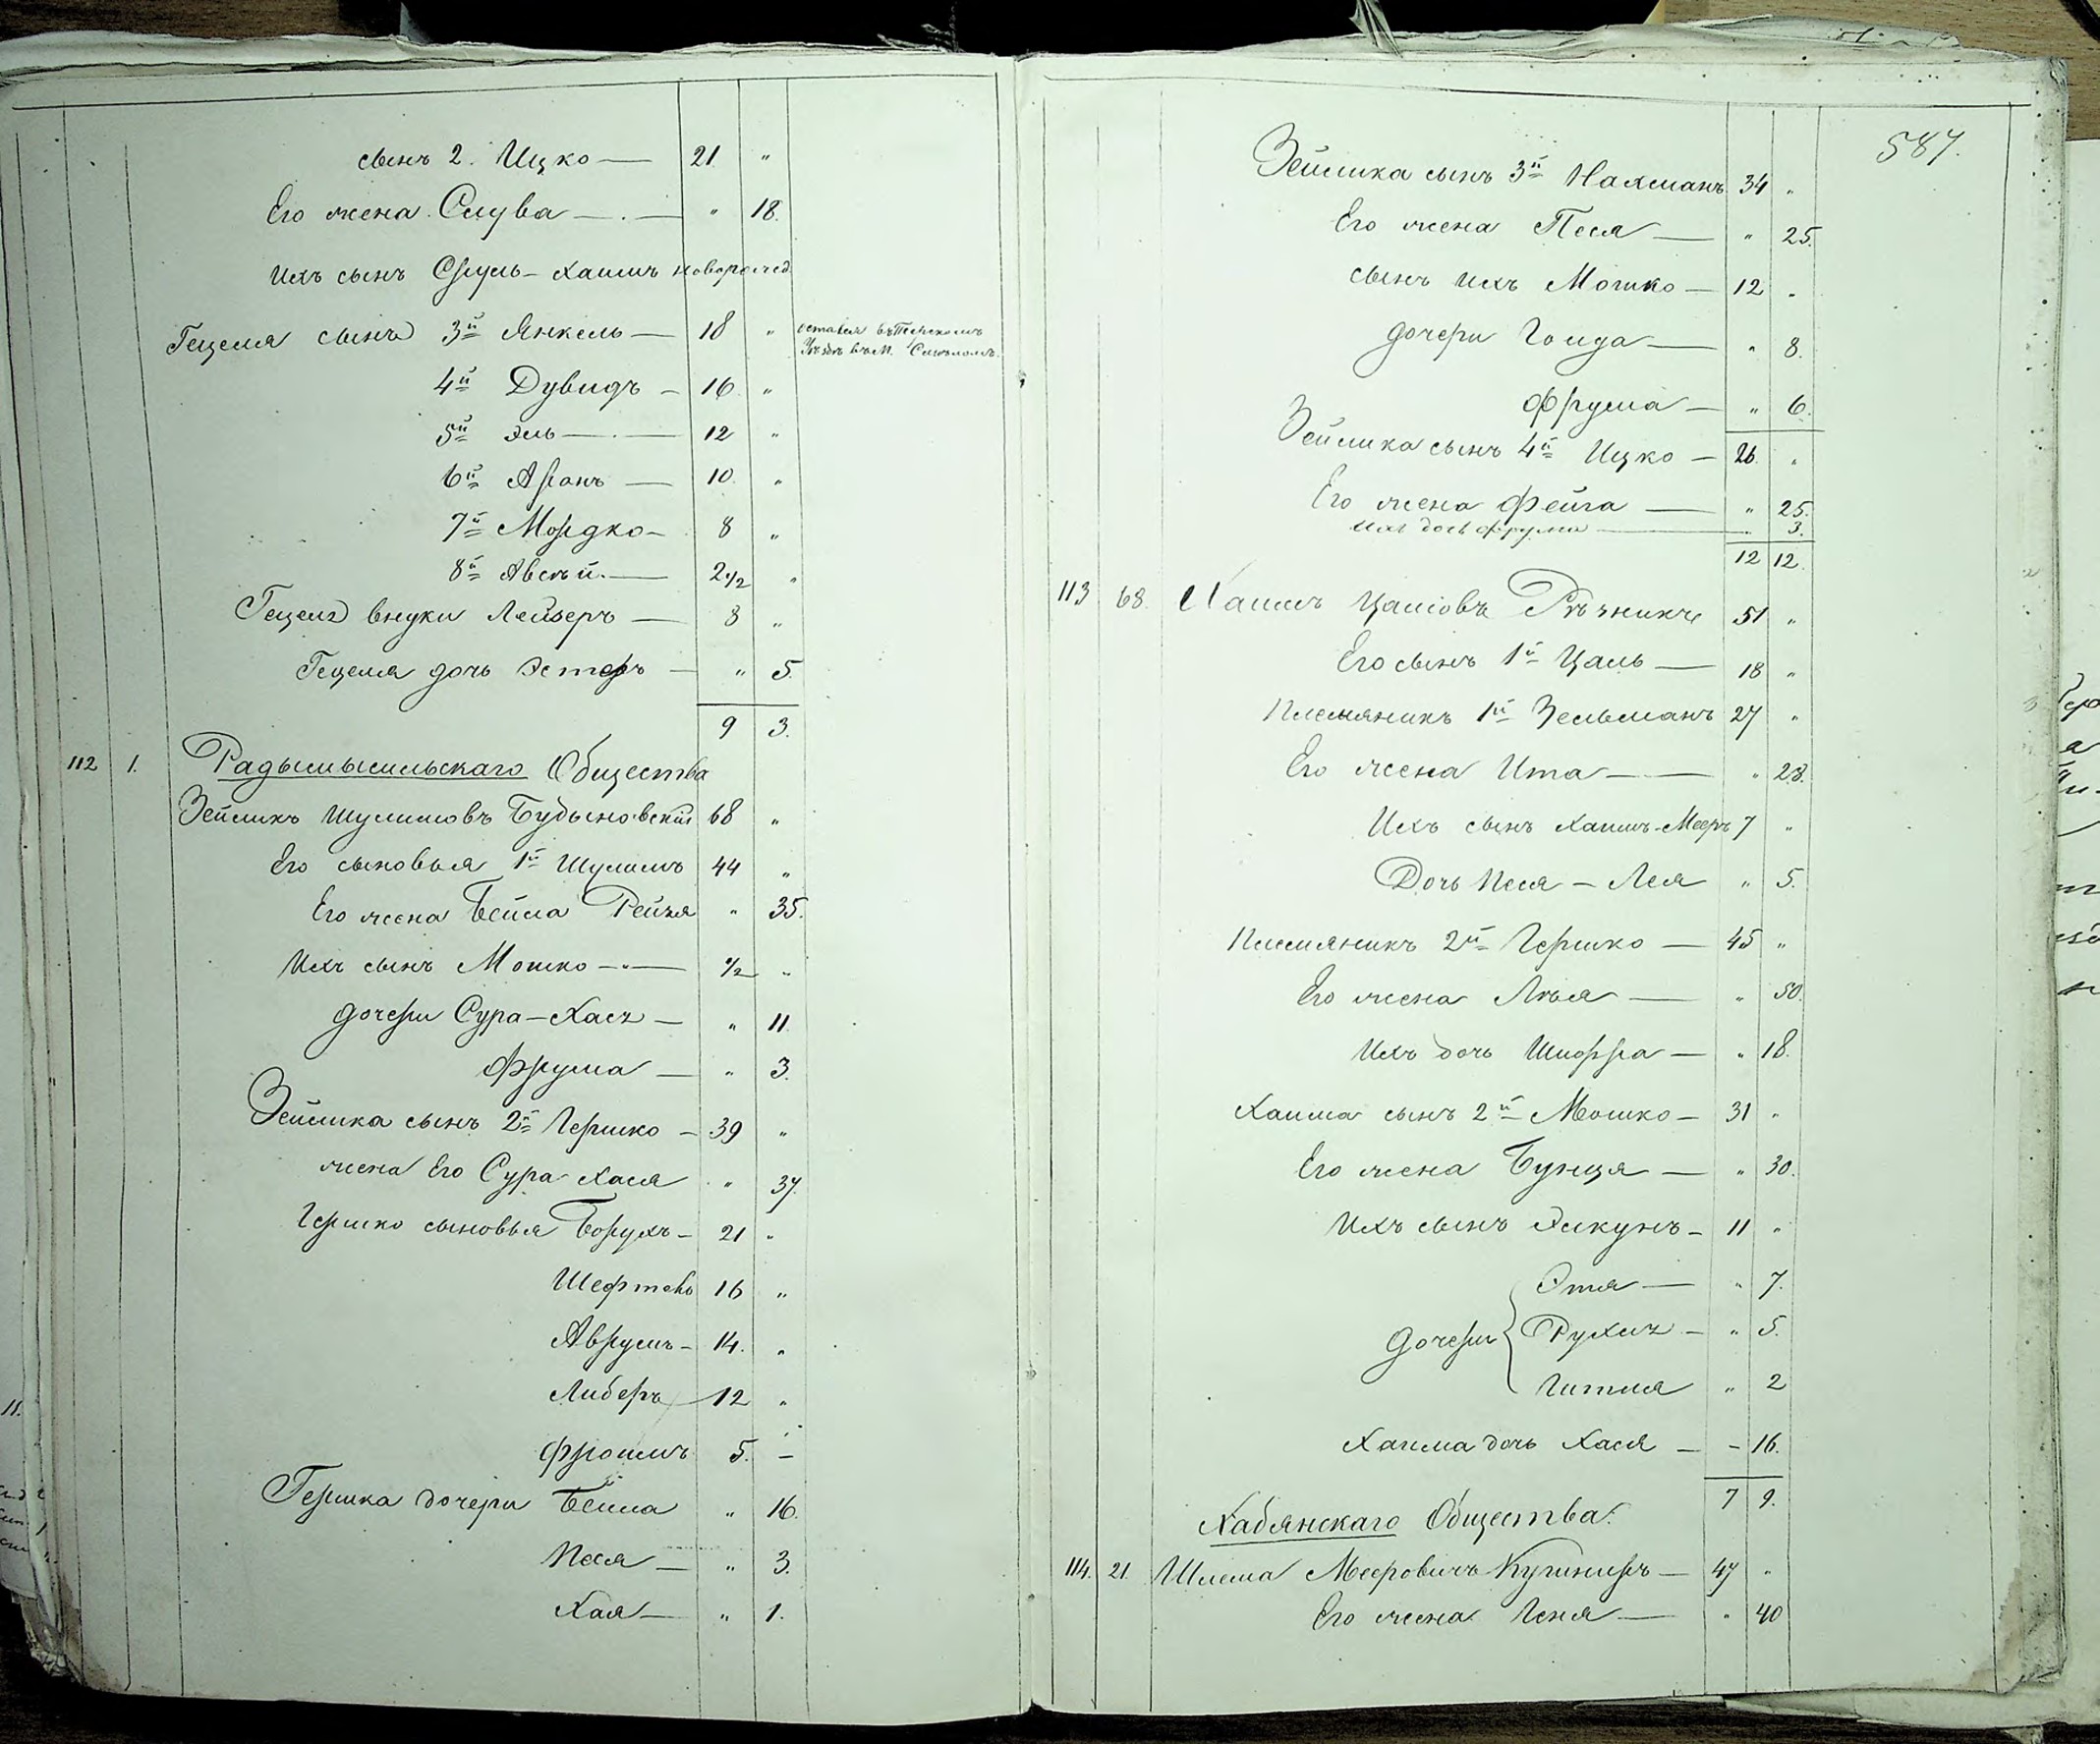 сынъ 2. Ицко — 21 „
Его жена Слува — . — „ 18.
Ихъ сынъ Сруль - Хаимъ новорожд.
Гецеля сынъ 3й Янкель — 18 „ остался въ
Уѣздѣ въ М.
4й Дувидъ — 16 „
5й Эль — . — 12 „
6й Аронъ — 10. „
7й Мордко — 8 „
8й Авсѣй. — 2 1/2 „
Гецеля внуки Лейзеръ — 8 „
Гецеля дочь Эстеръ — „ 5.
9 3.
112 1. Радымысльскаго Общества
Зейликъ Шулимовъ Будыновскій 68 „
Его сыновья 1й Шулимъ 44 „
Его жена Бейла Рейзя „ 35.
Ихъ сынъ Мошко — „ — 1/2 „
дочери Сура - Хася — „ 11.
Фрума — „ 3.
Зейлика сынъ 2й Гершко — 39 „
жена Его Сура Хася „ 37.
Гершко сыновья Борухъ — 21 „
Шефтель 16 „
Аврумъ — 14. „
Либеръ 12 „
Фроимъ 5. —
Гершка дочери Бейла „ 16.
Песя — „ 3.
Хая — „ 1.
587.
Зейлика сынъ 3й Нахманъ 34 „
Его жена Песя — „ 25.
сынъ ихъ Мошко — 12 „
дочери Голда — „ 8.
Фрума — „ 6.
Зейлика сынъ 4й Ицко — 26. „
Его жена Фейга — „ 25.
ихъ дочь Фрума — 3.
12 12.
113 68. Хаимъ Цалiовъ Рѣзникъ 51 „
Его сынъ 1й Цаль — 18 „
Племяникъ 1й Зельманъ 27 „
Его жена Ита — „ 28.
Ихъ сынъ Хаимъ-Мееръ 7 „
Дочь Песя — Лея „ 5.
Племяникъ 2й Гершко — 45 „
Его жена Лѣя — „ 50.
Ихъ дочь Шифра — „ 18.
Хаима сынъ 2й Мошко — 31 „
Его жена Бунця — „ 30.
Ихъ сынъ Элкунъ — 11 „
Этя — „ 7.
дочери Рухля — „ 5.
Гитля „ 2
Хаима дочь Хася — — 16.
7 9.
Хабянскаго Общества.
114. 21. Шлема Мееровичъ Кушниръ — 47 „
Его жена Геня — „ 40